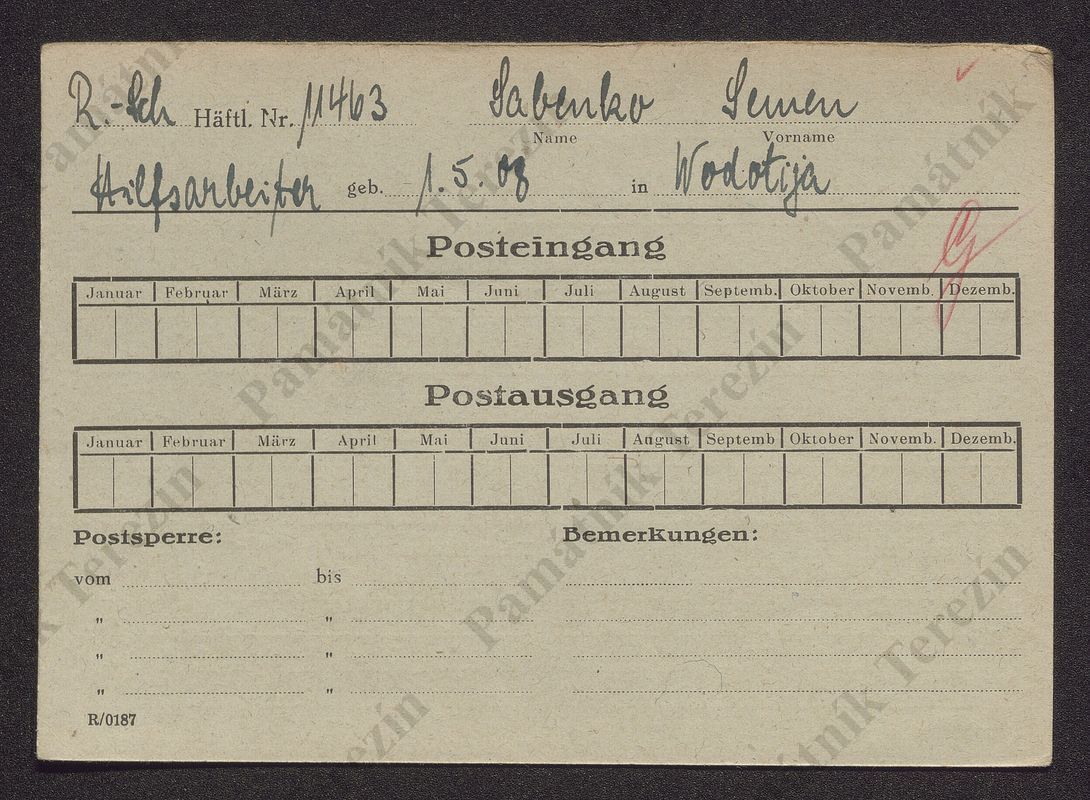 R.-Sch Häftl. Nr. 11463 Sabenko Semen
Name Vorname
Hilfsarbeiter geb. 1.5.08 in Wodotija
Posteingang
Januar Februar März April Mai Juni Juli August Septemb. Oktober Novemb. Dezemb.
Postausgang
Januar Februar März April Mai Juni Juli August Septemb Oktober Novemb. Dezemb.
Postsperre: Bemerkungen:
vom bis
" "
" "
" "
R/0187
Památník Terezín